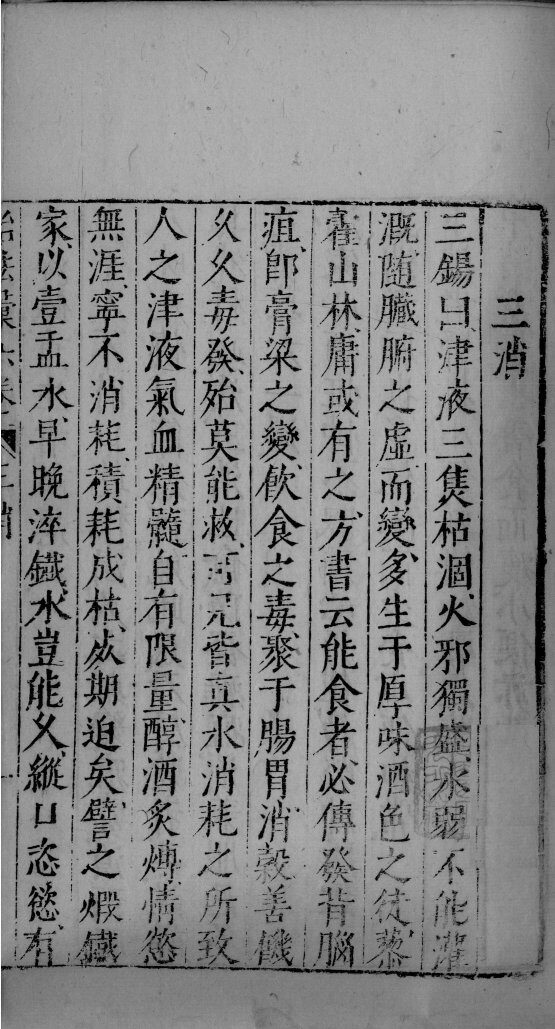 三消
三錫曰津液三焦枯涸火邪獨盛水弱不能灌
溉随臟腑之虛而變多生于厚味酒色之徒藜
藿山林庸或有之方書云能食者必傳發背腦
疽卽膏粱之變飲食之毒聚于腸胃消穀善饑
久久毒發殆莫能救可見皆真水消耗之所致
人之津液氣血精髓自有限量醇酒炙煿情慾
無涯寧不消耗積耗成枯死期迫矣譬之煅鐵
家以壹盂水早晚淬鐵水豈能久縱口恣慾有